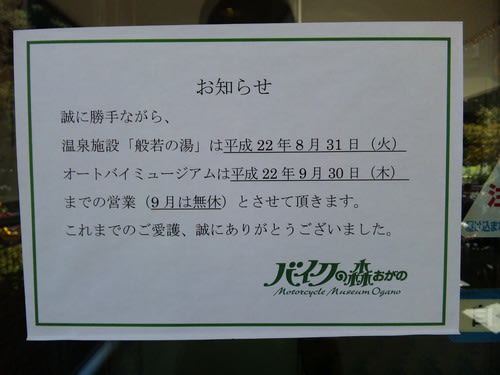 お知らせ
誠に勝手ながら、
温泉施設「般若の湯」は平成 22 年 8 月 31 日（火）
オートバイミュージアムは平成 22 年 9 月 30 日（木）
までの営業（9 月は無休）とさせて頂きます。
これまでのご愛護、誠にありがとうございました。
バイクの森おがの
Motorcycle Museum Ogano
注